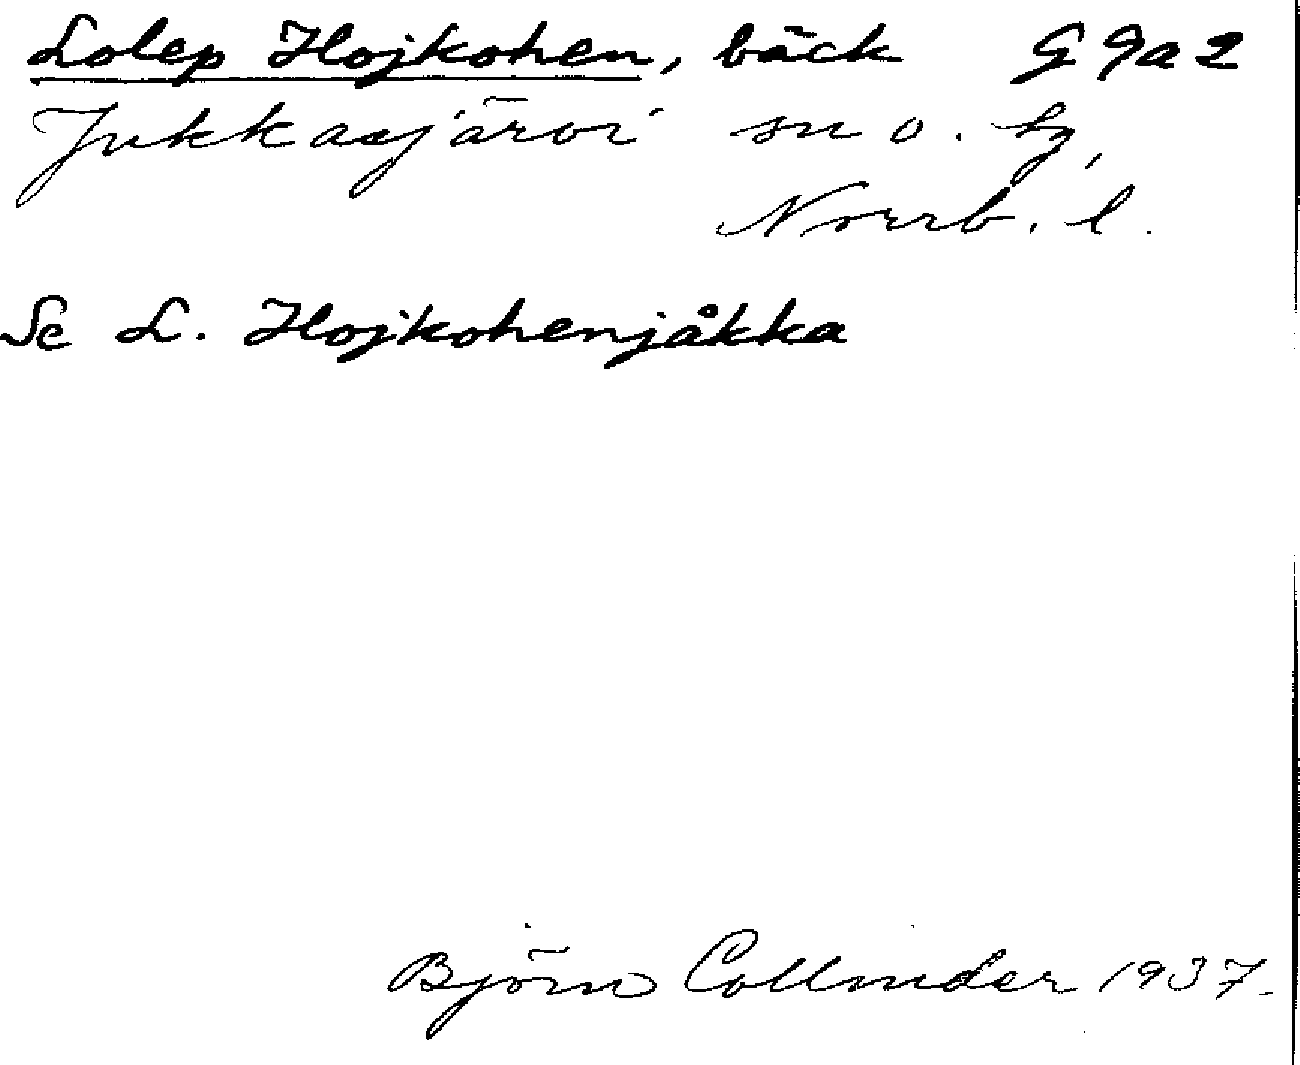 Lolep Hojkohen, bäck G 9a2
Jukkasjärvi sn o. tg,
Norrb. l.
Se L. Hojkohenjåkka
Björn Collinder 1937.